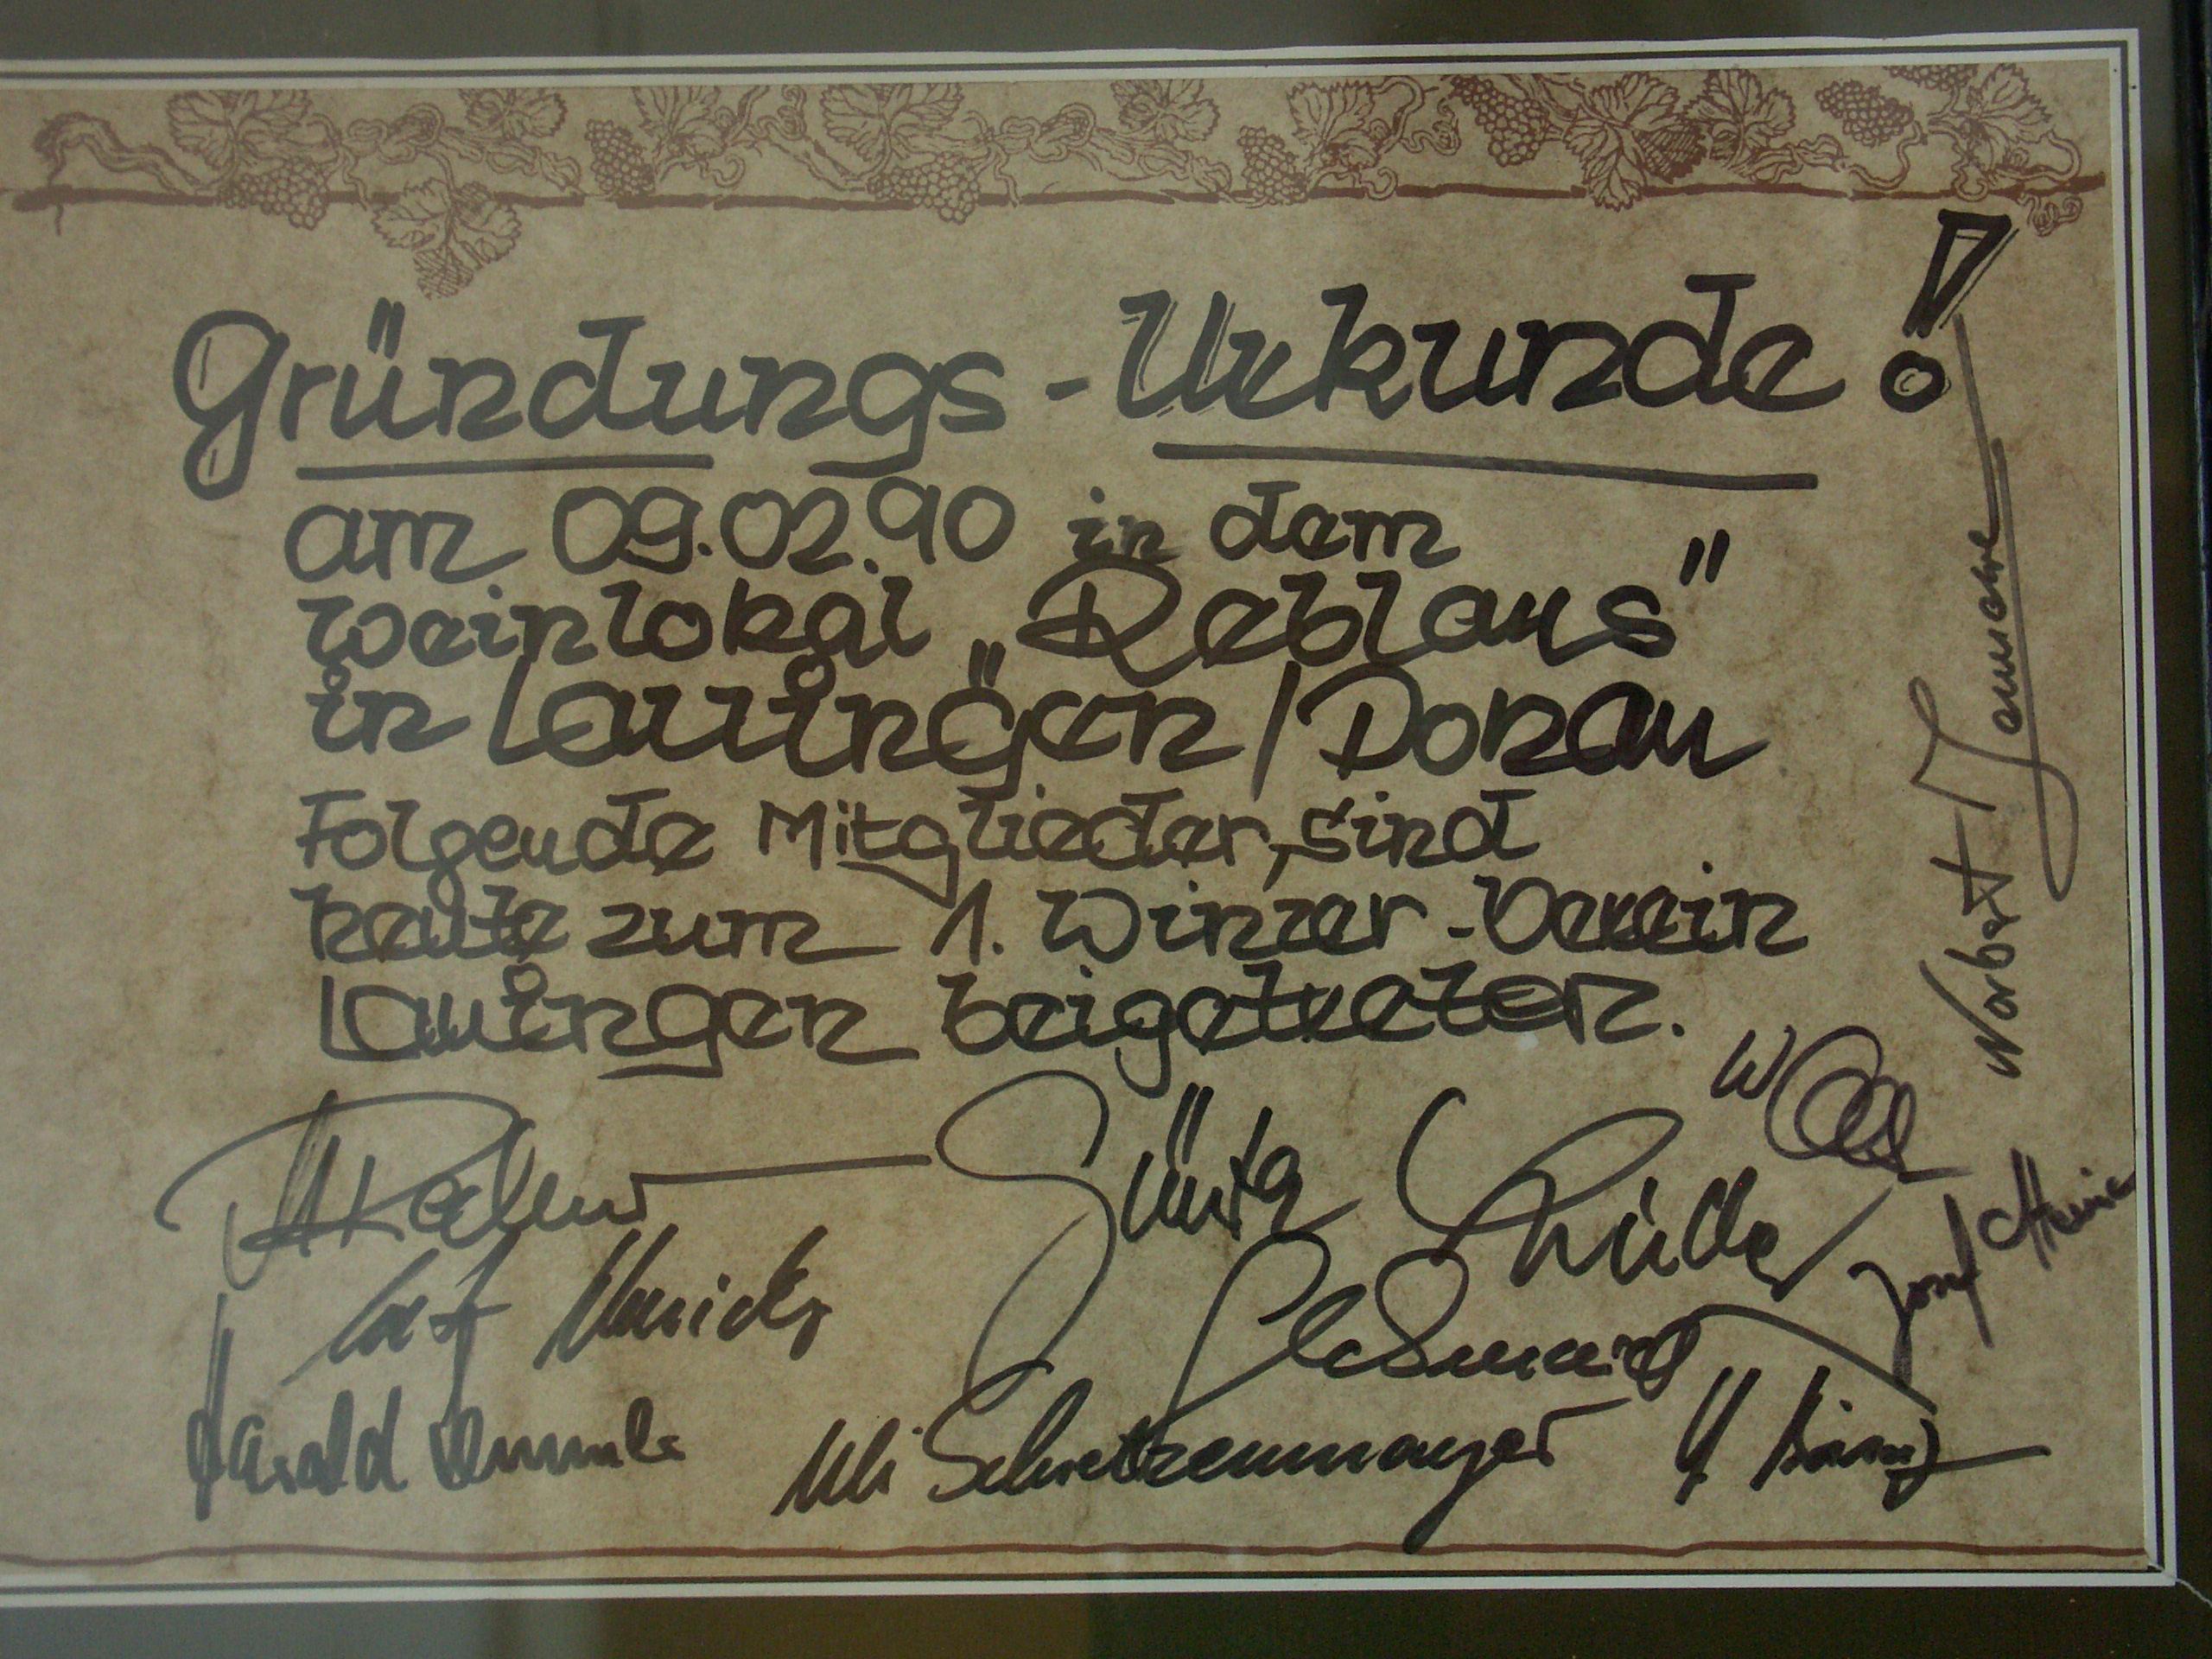 Gründungs-Urkunde!
am 09.02.90 in dem
Weinlokal „Reblaus"
in Lauingen/Donau
Folgende Mitglieder, sind
heute zum 1. Winzer-Verein
Lauingen beigetreten.
Norbert
Josef
Harald
Uli Schretzenmayer